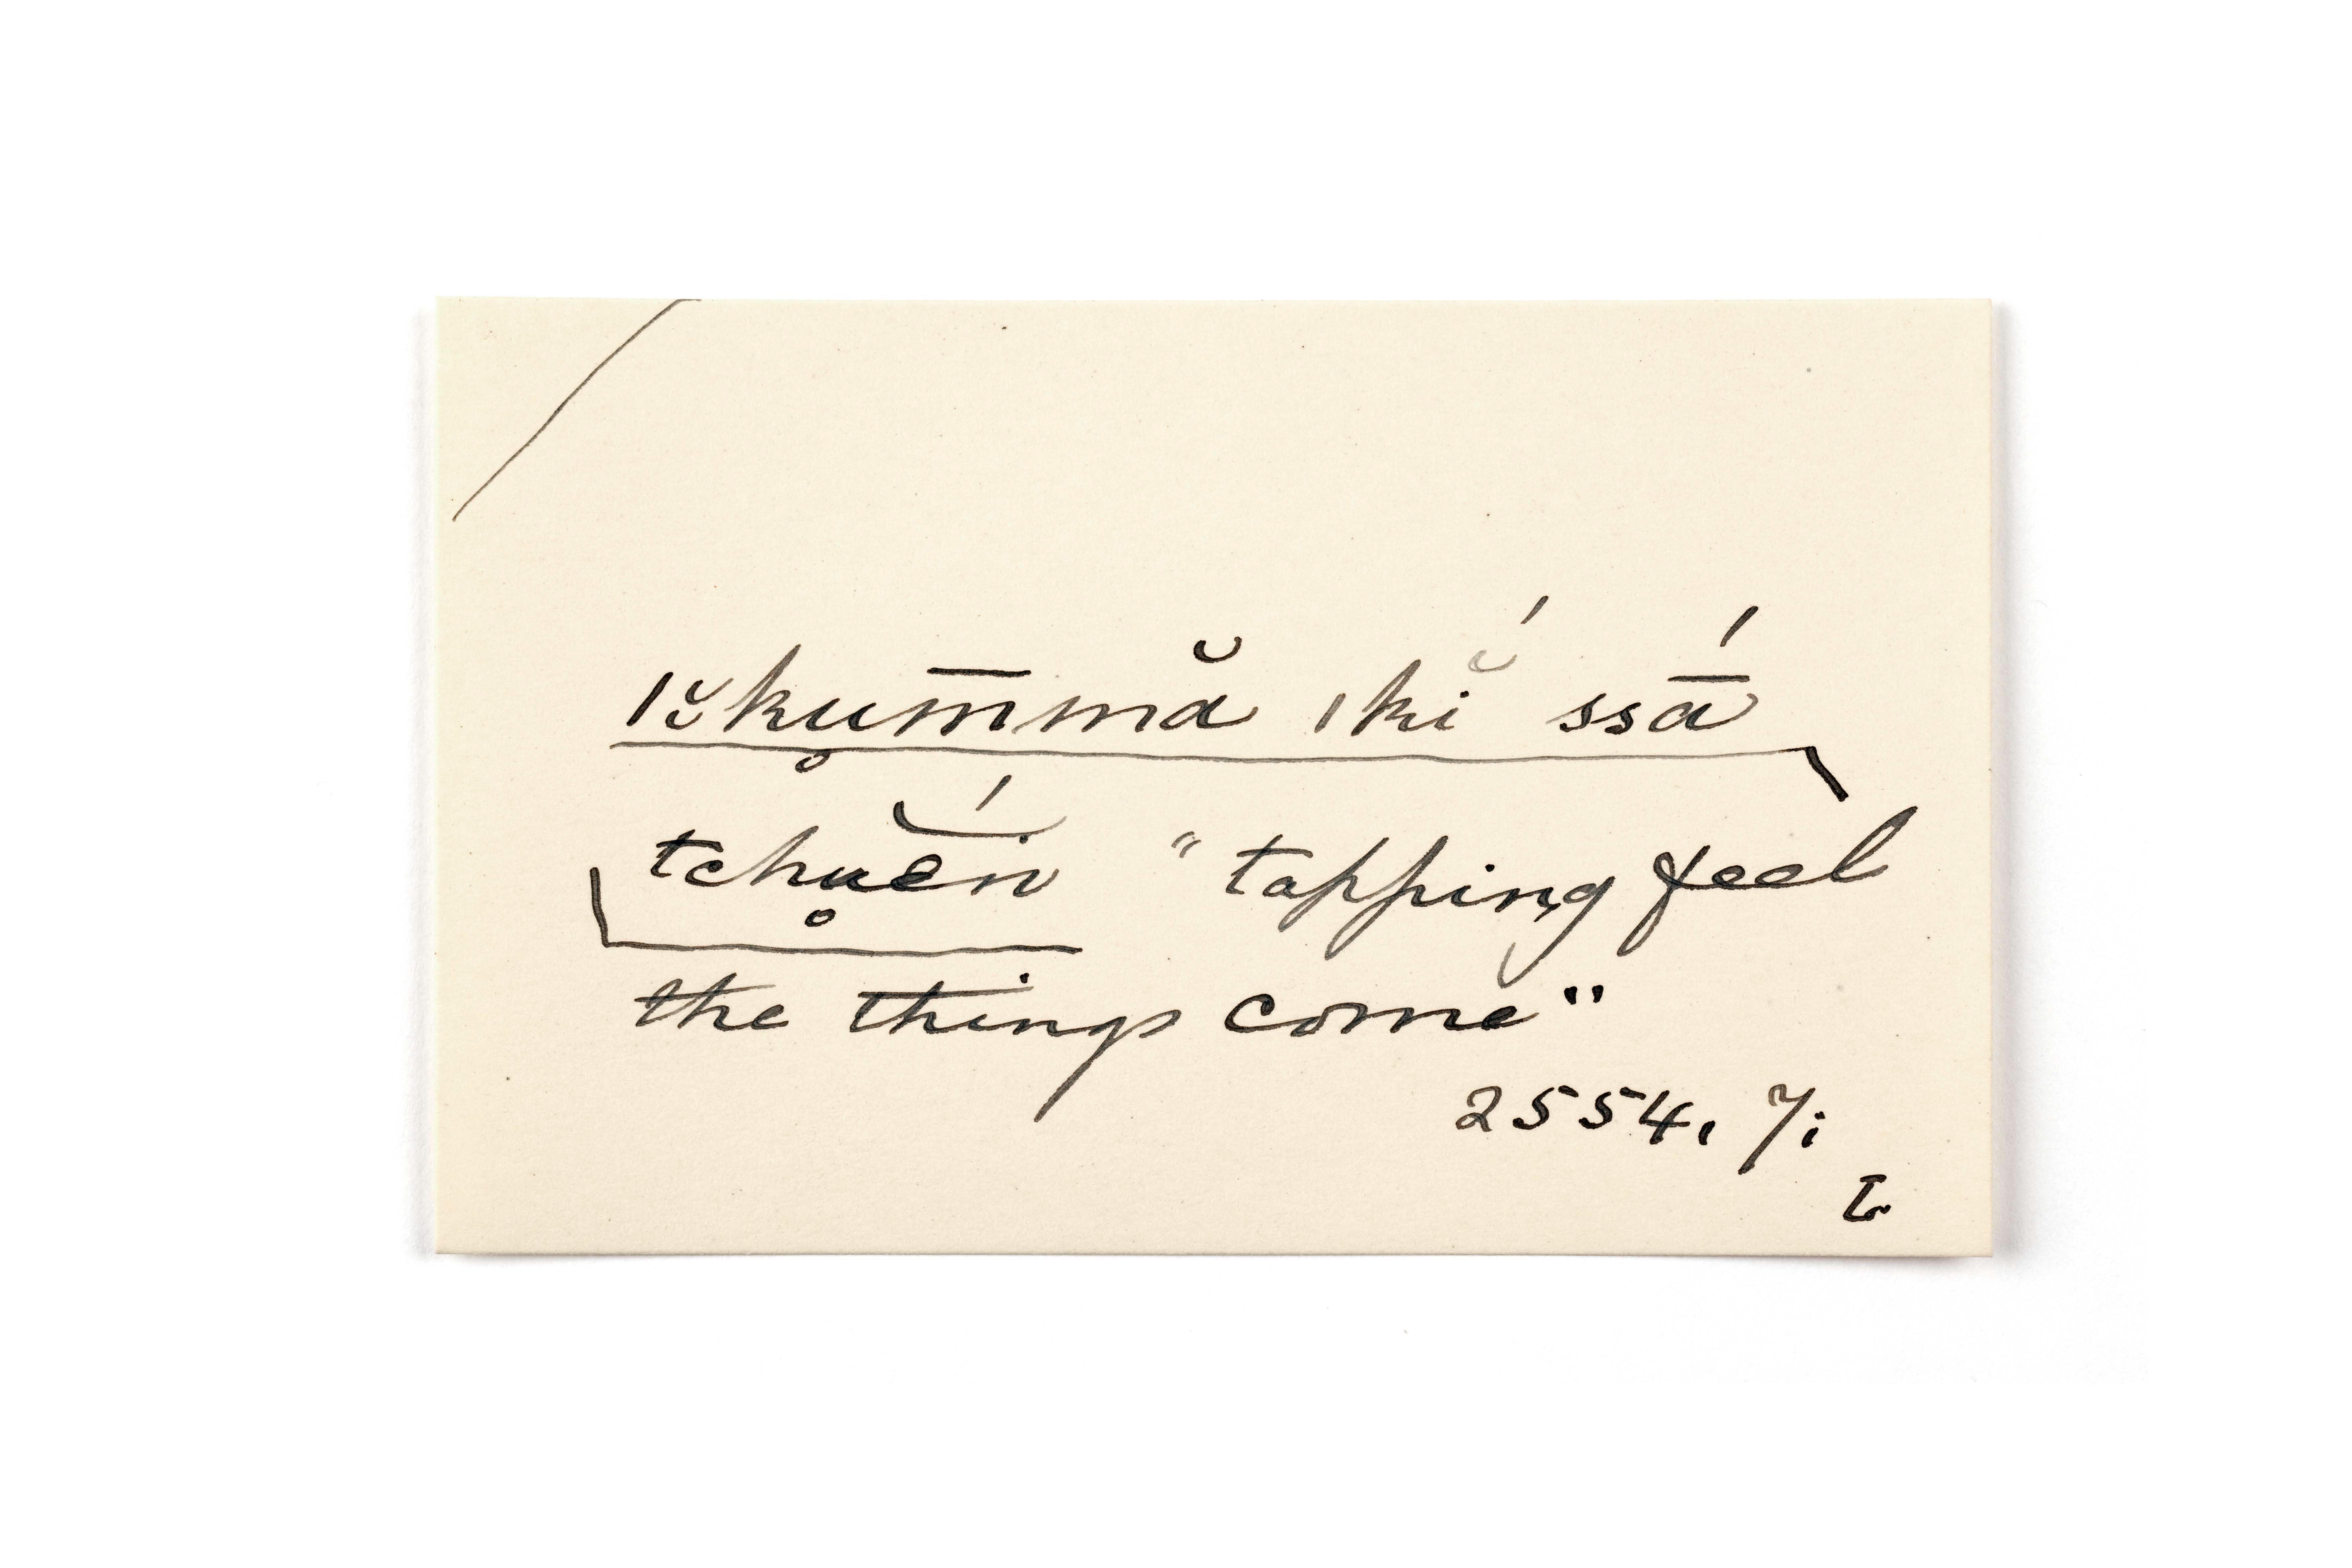 ĭkụm̄mă ikĭ́ ssā́
tchụĕ́n "tapping feel
the things come"
2554, 7;
L